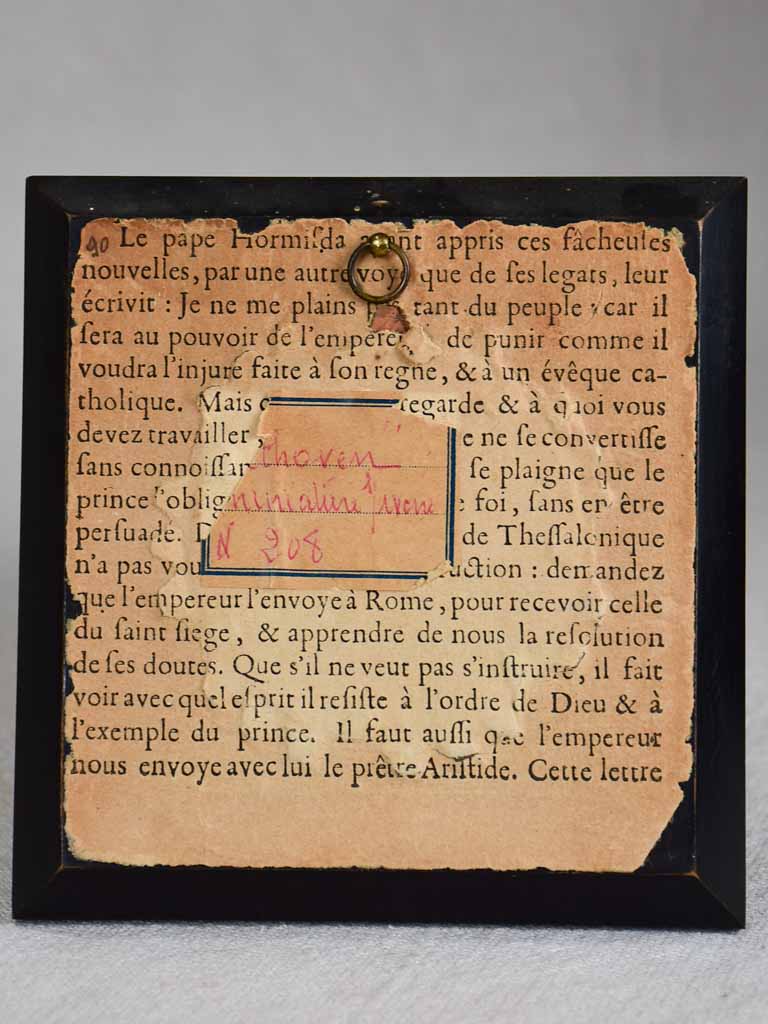 90 Le pape Hormiſda ayant appris ces fâcheuſes
nouvelles, par une autre voye que de ſes legats, leur
écrivit : Je ne me plains pas tant du peuple, car il
ſera au pouvoir de l'empereur de punir comme il
voudra l'injure faite à ſon regne, & à un évêque ca-
tholique. Mais regarde & à quoi vous
devez travailler, ne ſe convertiſſe
ſans connoiſſan ſe plaigne que le
prince l'oblig foi, ſans en être
perſuadé. de Theſſalonique
n'a pas vou uction : demandez
que l'empereur l'envoye à Rome, pour recevoir celle
du ſaint ſiege, & apprendre de nous la reſolution
de ſes doutes. Que s'il ne veut pas s'inſtruire, il fait
voir avec quel eſprit il reſiſte à l'ordre de Dieu & à
l'exemple du prince. Il faut auſſi que l'empereur
nous envoye avec lui le prêtre Ariſtide. Cette lettre
thoven
miniature s/ ivoire
N 208